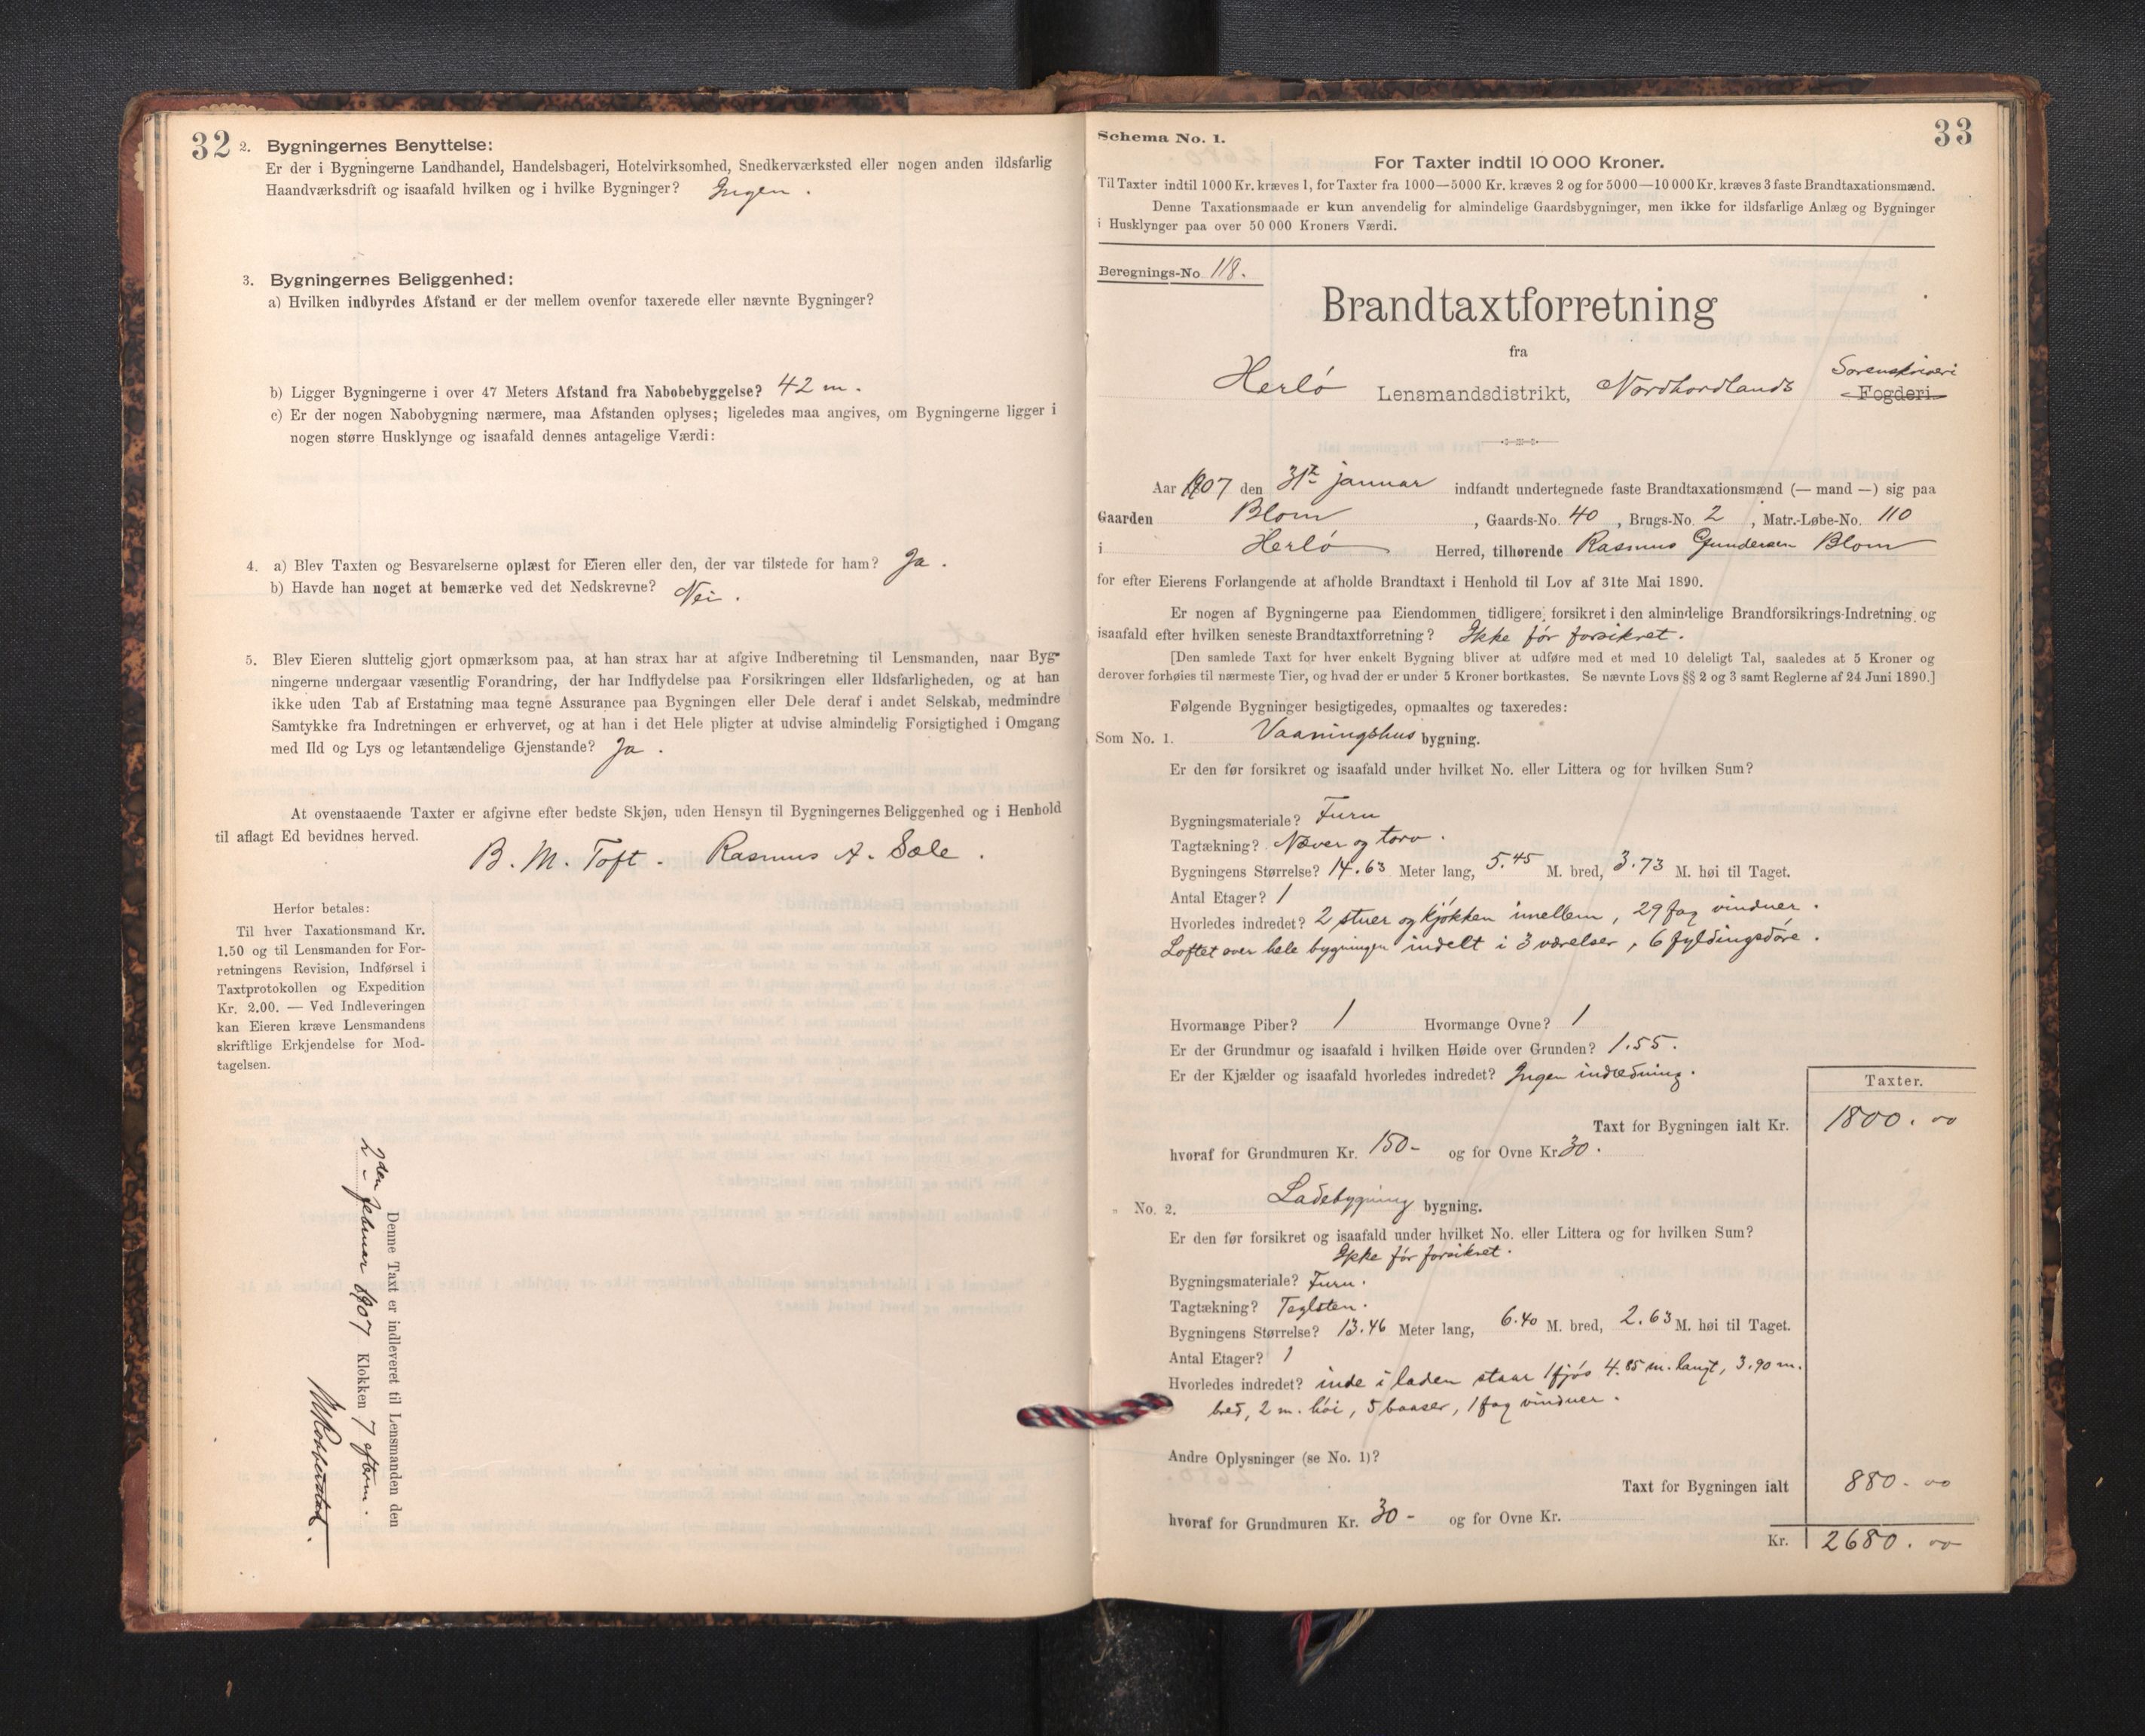 32
2. Bygningernes Benyttelse:
Er der i Bygningerne Landhandel, Handelsbageri, Hotelvirksomhed, Snedkerværksted eller nogen anden ildsfarlig
Haandværksdrift og isaafald hvilken og i hvilke Bygninger? Ingen.
3. Bygningernes Beliggenhed:
a) Hvilken indbyrdes Afstand er der mellem ovenfor taxerede eller nævnte Bygninger?
b) Ligger Bygningerne i over 47 Meters Afstand fra Nabobebyggelse? 42 m.
c) Er der nogen Nabobygning nærmere, maa Afstanden oplyses; ligeledes maa angives, om Bygningerne ligger i
nogen større Husklynge og isaafald dennes antagelige Værdi:
4. a) Blev Taxten og Besvarelserne oplæst for Eieren eller den, der var tilstede for ham? Ja.
b) Havde han noget at bemærke ved det Nedskrevne? Nei.
5. Blev Eieren sluttelig gjort opmærksom paa, at han strax har at afgive Indberetning til Lensmanden, naar Byg-
ningerne undergaar væsentlig Forandring, der har Indflydelse paa Forsikringen eller Ildsfarligheden, og at han
ikke uden Tab af Erstatning maa tegne Assurance paa Bygningen eller Dele deraf i andet Selskab, medmindre
Samtykke fra Indretningen er erhvervet, og at han i det Hele pligter at udvise almindelig Forsigtighed i Omgang
med Ild og Lys og letantændelige Gjenstande? Ja.
At ovenstaaende Taxter er afgivne efter bedste Skjøn, uden Hensyn til Bygningernes Beliggenhed og i Henhold
til aflagt Ed bevidnes herved.
B. M. Toft. Rasmus A. Sæle.
Herfor betales:
Til hver Taxationsmand Kr.
1.50 og til Lensmanden for For-
retningens Revision, Indførsel i
Taxtprotokollen og Expedition
Kr. 2.00. — Ved Indleveringen
kan Eieren kræve Lensmandens
skriftlige Erkjendelse for Mod-
tagelsen.
Denne Taxt er indleveret til Lensmanden den
2den Februar 1907 Klokken 7 efterm.
33
Schema No. 1.
For Taxter indtil 10 000 Kroner.
Til Taxter indtil 1000 Kr. kræves 1, for Taxter fra 1000—5000 Kr. kræves 2 og for 5000—10 000 Kr. kræves 3 faste Brandtaxationsmænd.
Denne Taxationsmaade er kun anvendelig for almindelige Gaardsbygninger, men ikke for ildsfarlige Anlæg og Bygninger
i Husklynger paa over 50 000 Kroners Værdi.
Beregnings-No 118.
Brandtaxtforretning
fra
Herlö Lensmandsdistrikt, Nordhordlands Sorenskriveri Fogderi
Aar 1907 den 31te januar indfandt undertegnede faste Brandtaxationsmænd (— mand —) sig paa
Gaarden Blom, Gaards-No. 40, Brugs-No. 2, Matr.-Løbe-No. 110
i Herlö Herred, tilhørende Rasmus Gundersen Blom
for efter Eierens Forlangende at afholde Brandtaxt i Henhold til Lov af 31te Mai 1890.
Er nogen af Bygningerne paa Eiendommen tidligere forsikret i den almindelige Brandforsikrings-Indretning og
isaafald efter hvilken seneste Brandtaxtforretning? Ikke för forsikret.
[Den samlede Taxt for hver enkelt Bygning bliver at udføre med et med 10 deleligt Tal, saaledes at 5 Kroner og
derover forhøies til nærmeste Tier, og hvad der er under 5 Kroner bortkastes. Se nævnte Lovs §§ 2 og 3 samt Reglerne af 24 Juni 1890.]
Følgende Bygninger besigtigedes, opmaaltes og taxeredes:
Som No. 1. Vaaningshus bygning.
Er den før forsikret og isaafald under hvilket No. eller Littera og for hvilken Sum?
Bygningsmateriale? Furu
Tagtækning? Næver og torv.
Bygningens Størrelse? 14.63 Meter lang, 5.45 M. bred, 3.73 M. høi til Taget.
Antal Etager? 1
Hvorledes indredet? 2 stuer og kjökken imellem, 29 fag vinduer.
Loftet over hele bygningen indelt i 3 værelser, 6 fyldingsdöre.
Hvormange Piber? 1 Hvormange Ovne? 1
Er der Grundmur og isaafald i hvilken Høide over Grunden? 1.55.
Er der Kjælder og isaafald hvorledes indredet? Ingen indredning.
Taxter.
Taxt for Bygningen ialt Kr. 1800.00
hvoraf for Grundmuren Kr. 150- og for Ovne Kr. 30.
" No. 2. Ladebygning bygning.
Er den før forsikret og isaafald under hvilket No. eller Littera og for hvilken Sum?
Ikke för forsikret.
Bygningsmateriale? Furu.
Tagtækning? Teglsten.
Bygningens Størrelse? 13.46 Meter lang, 6.40 M. bred, 2.63 M. høi til Taget.
Antal Etager? 1
Hvorledes indredet? inde i laden staar 1 fjös 4.85 m. langt, 3.90 m.
bred, 2 m. höi, 5 baaser, 1 fag vinduer.
Andre Oplysninger (se No. 1)?
Taxt for Bygningen ialt 880.00
hvoraf for Grundmuren Kr. 30- og for Ovne Kr.
Kr. 2680.00